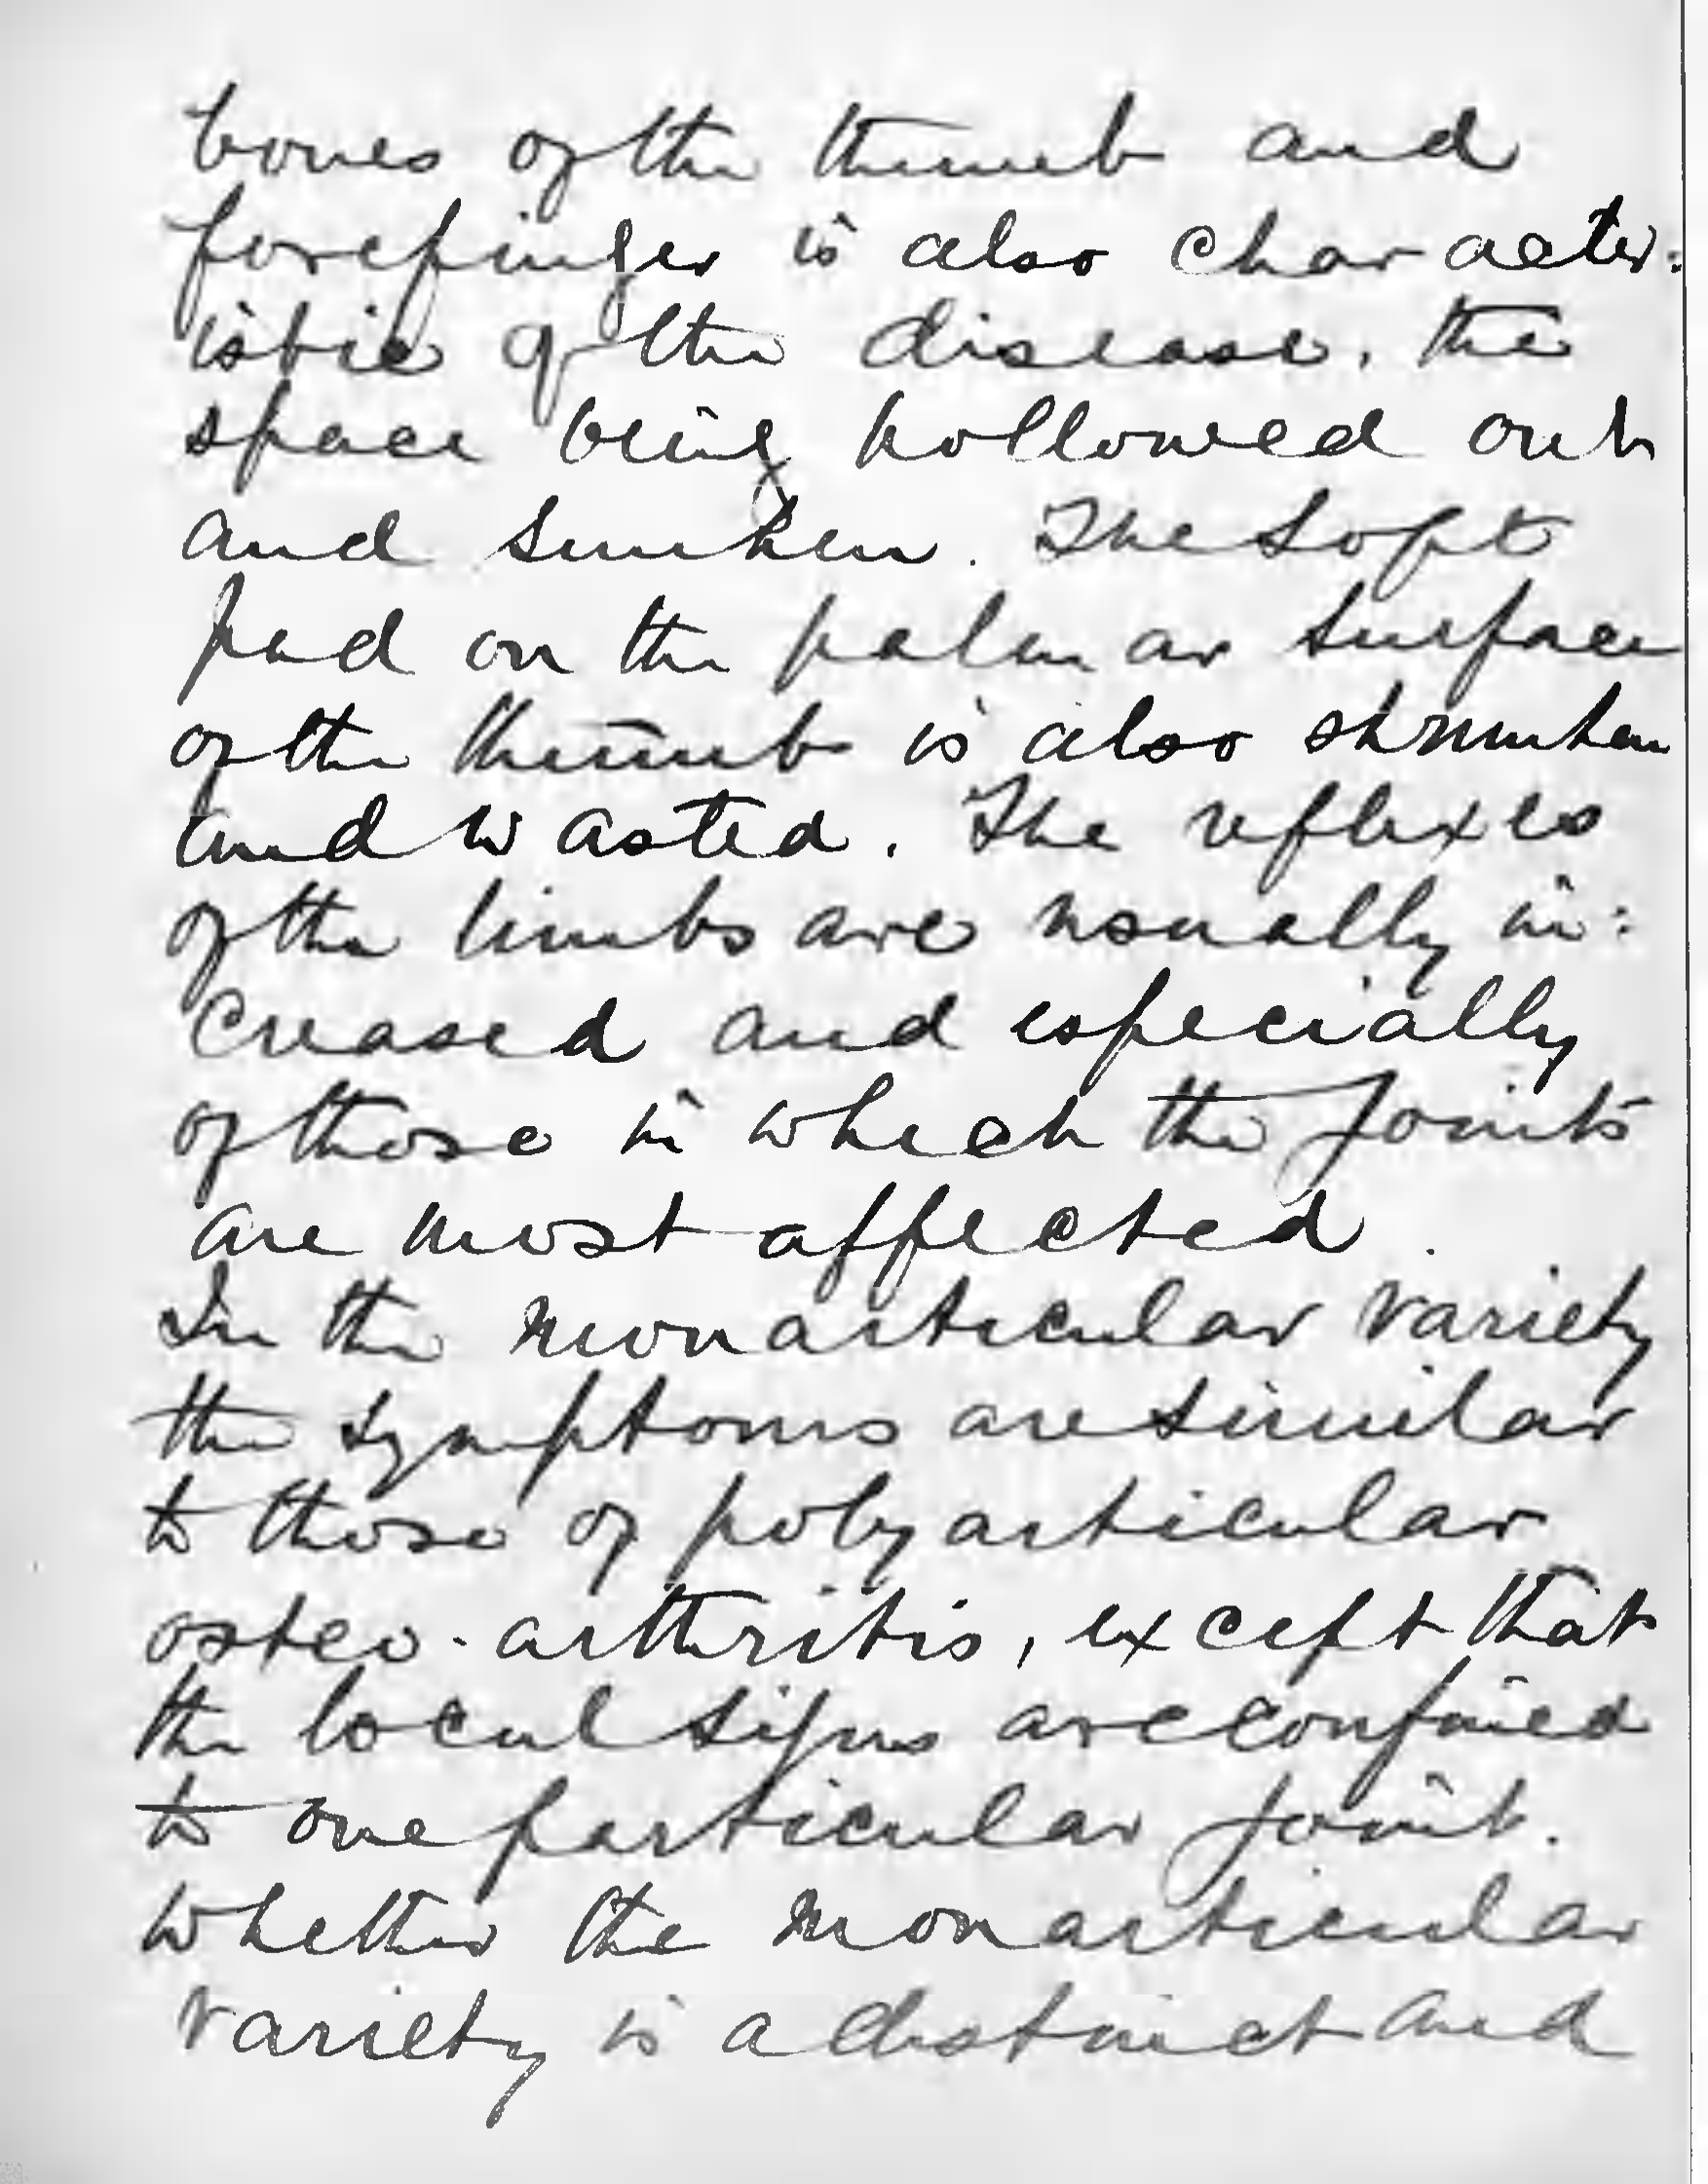 bones of the thumb and
forefinger is also character:
istic of the disease, the
space being hollowed out
and sunken. The soft
pad on the palmar surface
of the thumb is also shrunken
and wasted. The reflexes
of the limbs are usually in:
creased and especially
of those in which the joints
are most affected.
In the monarticular variety
the symptoms are similar
to those of polyarticular
osteo-arthritis, except that
the local signs are confined
to one particular joint.
Whether the monarticular
variety is a distinct and